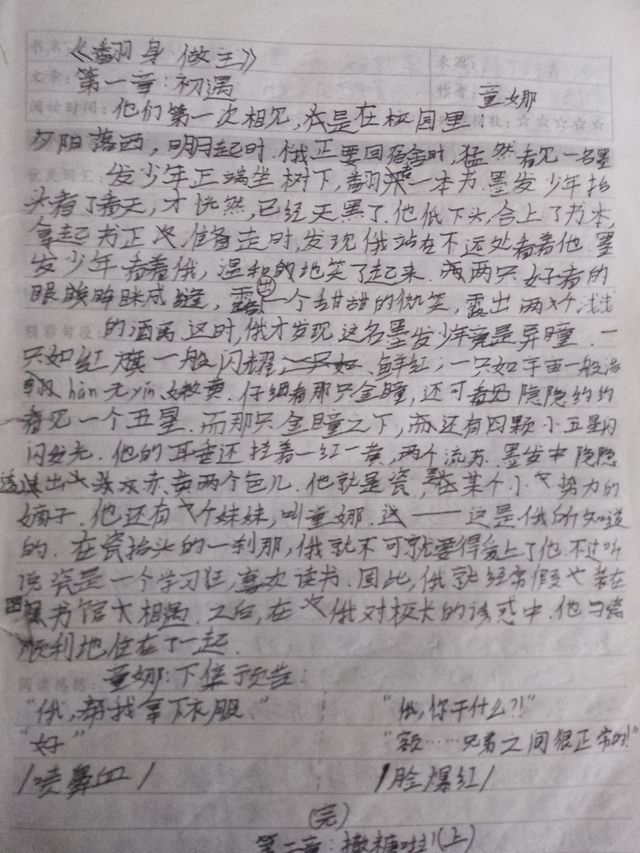 《翻身做主》
第一章:初遇
童娜
阅读时间:他们第一次相见,是在校园里
☆☆☆☆☆
夕阳落西,明月起时.俄正要回宿舍时,猛然看见一名墨
发少年正端坐树下,翻一本书.墨发少年抬
头看了看天,才恍然,已经天黑了.他低下头,合上了书本,
拿起书正准备走时,发现俄站在不远处看着他.墨
发少年看着俄,温和地笑了起来.两只好看的
眼眸眯成缝,露出一个甜甜的微笑,露出两个浅浅
的酒窝.这时,俄才发现这名墨发少年竟是异瞳.一
只如红旗一般闪耀,鲜红;一只如宇宙一般浩
瀚hàn无yín,嫩黄.仔细看那只金瞳,还可隐隐约约
看见一个五星.而那只金瞳之下,还有四颗小五星闪
闪发光.他的耳垂还挂着一红一黄,两个流苏.墨发中隐隐
透出赤、黄两个包儿.他就是瓷,是某个小势力的
嫡子.他还有个妹妹,叫童娜.这——这是俄所知道
的.在瓷抬头的一刹那,俄就不可就要得爱上了他.不过听
说瓷是一个学习狂,喜欢读书.因此,俄就经常假装在
图书馆大相遇.之后,在俄对校长的诱惑中.他与瓷
顺利地住在了一起.
阅读感想:童娜:下集预告:
"俄,帮我拿下衣服." "俄,你干什么?!"
"好" "额……兄弟之间很正常的!"
/喷鼻血/ /脸爆红/
(完)
第二章:撒糖啦!(上)